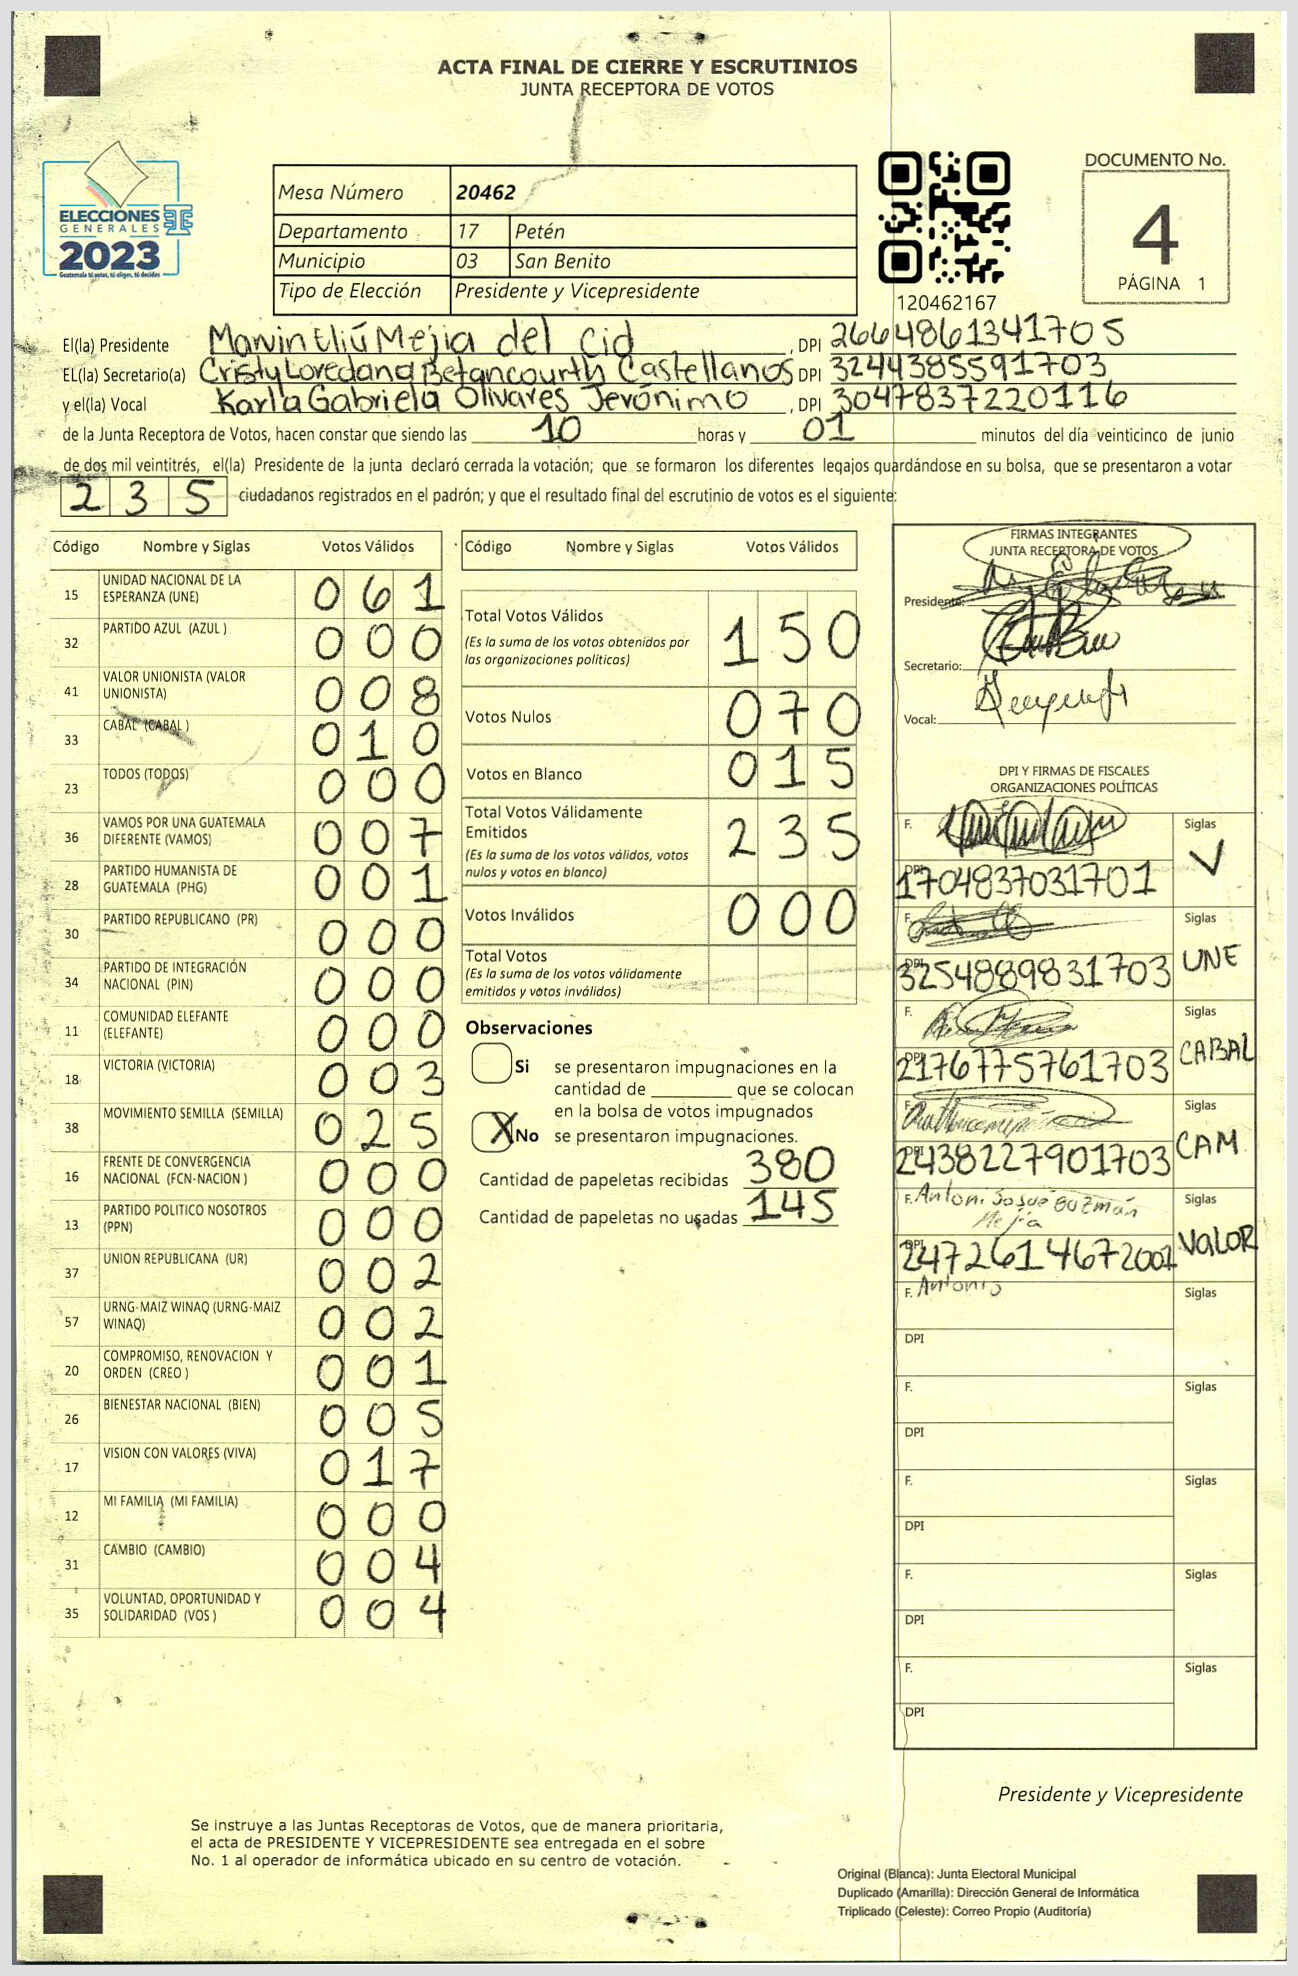 ACTA FINAL DE CIERRE Y ESCRUTINIOS
JUNTA RECEPTORA DE VOTOS
ELECCIONES
GENERALES
2023
Guatemala tú votas, tú eliges, tú decides
Mesa Número 20462
Departamento 17 Petén
Municipio 03 San Benito
Tipo de Elección Presidente y Vicepresidente
120462167
DOCUMENTO No.
4
PÁGINA 1
El(la) Presidente Mejia del Cid, DPI 2664861341705
EL(la) Secretario(a) Cristy Loredana Betancourth Castellanos DPI 3244385591703
y el(la) Vocal Karla Gabriela Olivares Jerónimo, DPI 3047837220116
de la Junta Receptora de Votos, hacen constar que siendo las 10 horas y 01 minutos del día veinticinco de junio
de dos mil veintitrés, el(la) Presidente de la junta declaró cerrada la votación; que se formaron los diferentes legajos guardándose en su bolsa, que se presentaron a votar
235 ciudadanos registrados en el padrón; y que el resultado final del escrutinio de votos es el siguiente:
Código Nombre y Siglas Votos Válidos
15 UNIDAD NACIONAL DE LA ESPERANZA (UNE) 061
32 PARTIDO AZUL (AZUL ) 000
41 VALOR UNIONISTA (VALOR UNIONISTA) 008
33 CABAL (CABAL ) 010
23 TODOS (TODOS) 000
36 VAMOS POR UNA GUATEMALA DIFERENTE (VAMOS) 007
28 PARTIDO HUMANISTA DE GUATEMALA (PHG) 001
30 PARTIDO REPUBLICANO (PR) 000
34 PARTIDO DE INTEGRACIÓN NACIONAL (PIN) 000
11 COMUNIDAD ELEFANTE (ELEFANTE) 000
18 VICTORIA (VICTORIA) 003
38 MOVIMIENTO SEMILLA (SEMILLA) 025
16 FRENTE DE CONVERGENCIA NACIONAL (FCN-NACION ) 000
13 PARTIDO POLITICO NOSOTROS (PPN) 000
37 UNION REPUBLICANA (UR) 002
57 URNG-MAIZ WINAQ (URNG-MAIZ WINAQ) 002
20 COMPROMISO, RENOVACION Y ORDEN (CREO ) 001
26 BIENESTAR NACIONAL (BIEN) 005
17 VISION CON VALORES (VIVA) 017
12 MI FAMILIA (MI FAMILIA) 000
31 CAMBIO (CAMBIO) 004
35 VOLUNTAD, OPORTUNIDAD Y SOLIDARIDAD (VOS ) 004
Código Nombre y Siglas Votos Válidos
Total Votos Válidos 150
(Es la suma de los votos obtenidos por
las organizaciones políticas)
Votos Nulos 070
Votos en Blanco 015
Total Votos Válidamente
Emitidos 235
(Es la suma de los votos válidos, votos
nulos y votos en blanco)
Votos Inválidos 000
Total Votos
(Es la suma de los votos válidamente
emitidos y votos inválidos)
Observaciones
Si se presentaron impugnaciones en la
cantidad de ________ que se colocan
en la bolsa de votos impugnados
X No se presentaron impugnaciones.
Cantidad de papeletas recibidas 380
Cantidad de papeletas no usadas 145
FIRMAS INTEGRANTES
JUNTA RECEPTORA DE VOTOS
Presidente:
Secretario:
Vocal:
DPI Y FIRMAS DE FISCALES
ORGANIZACIONES POLÍTICAS
F. Siglas V
DPI 1704837031701
F. Siglas UNE
DPI 3254889831703
F. Siglas CABAL
DPI 2176775761703
F. Siglas CAM
DPI 2438227901703
F. Antoni Josué Guzmán Mejía Siglas VALOR
DPI 2472614672001
F. Antonio Siglas
DPI
F. Siglas
DPI
F. Siglas
DPI
F. Siglas
DPI
F. Siglas
DPI
Presidente y Vicepresidente
Se instruye a las Juntas Receptoras de Votos, que de manera prioritaria,
el acta de PRESIDENTE Y VICEPRESIDENTE sea entregada en el sobre
No. 1 al operador de informática ubicado en su centro de votación.
Original (Blanca): Junta Electoral Municipal
Duplicado (Amarilla): Dirección General de Informática
Triplicado (Celeste): Correo Propio (Auditoría)